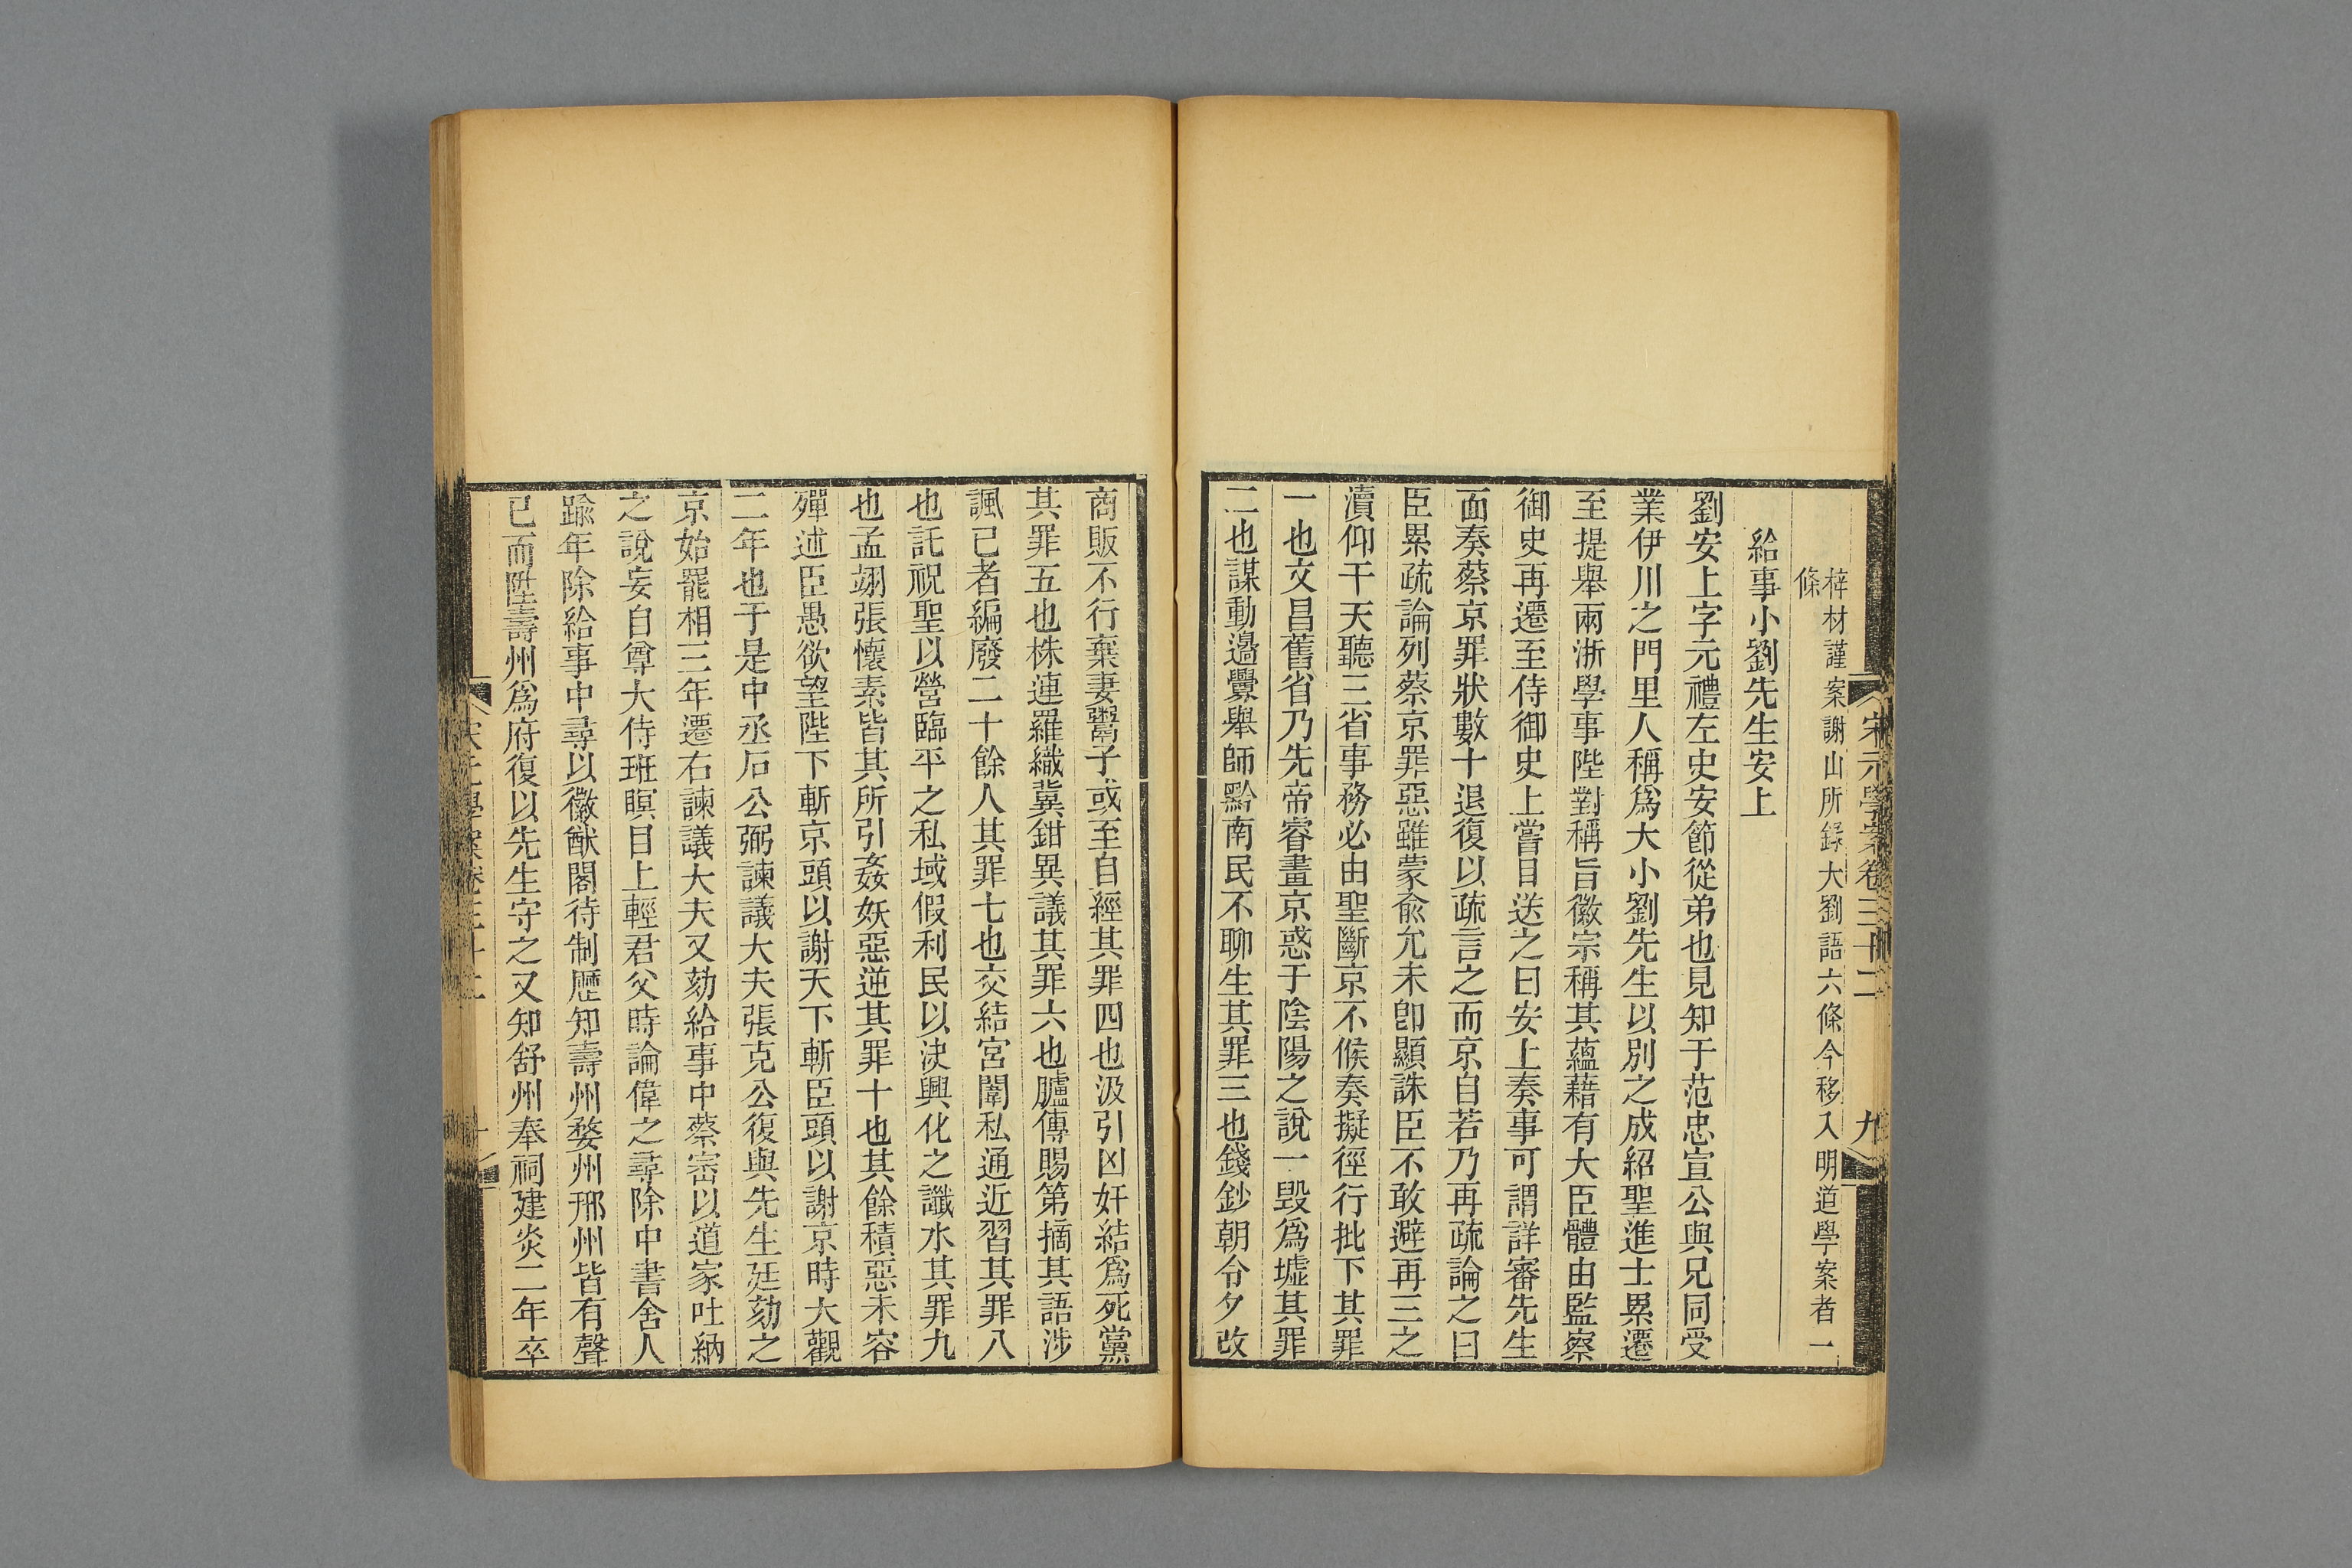 宋元學案卷三十二
九
梓材謹案謝山所錄大劉語六條今移入明道學案者一
條
給事小劉先生安上
劉安上字元禮左史安節從弟也見知于范忠宣公與兄同受
業伊川之門里人稱爲大小劉先生以別之成紹聖進士累遷
至提舉兩浙學事陛對稱旨徽宗稱其蘊藉有大臣體由監察
御史再遷至侍御史上嘗目送之曰安上奏事可謂詳審先生
面奏蔡京罪狀數十退復以疏言之而京自若乃再疏論之曰
臣累疏論列蔡京罪惡雖蒙兪允未卽顯誅臣不敢避再三之
瀆仰干天聽三省事務必由聖斷京不候奏擬徑行批下其罪
一也文昌舊省乃先帝睿畫京惑于陰陽之說一毀爲墟其罪
二也謀動邊釁舉師黔南民不聊生其罪三也錢鈔朝令夕改
商販不行棄妻鬻子或至自經其罪四也汲引凶奸結爲死黨
其罪五也株連羅織冀鉗異議其罪六也臚傳賜第摘其語涉
諷已者編廢二十餘人其罪七也交結宮闈私通近習其罪八
也託祝聖以營臨平之私域假利民以決興化之讖水其罪九
也孟翊張懷素皆其所引姦妖惡逆其罪十也其餘積惡未容
殫述臣愚欲望陛下斬京頭以謝天下斬臣頭以謝京時大觀
二年也于是中丞石公弼諫議大夫張克公復與先生廷劾之
京始罷相三年遷右諫議大夫又劾給事中蔡密以道家吐納
之說妄自尊大侍班瞑目上輕君父時論偉之尋除中書舍人
踰年除給事中尋以徽猷閣待制歷知壽州婺州邢州皆有聲
已而陞壽州爲府復以先生守之又知舒州奉祠建炎二年卒